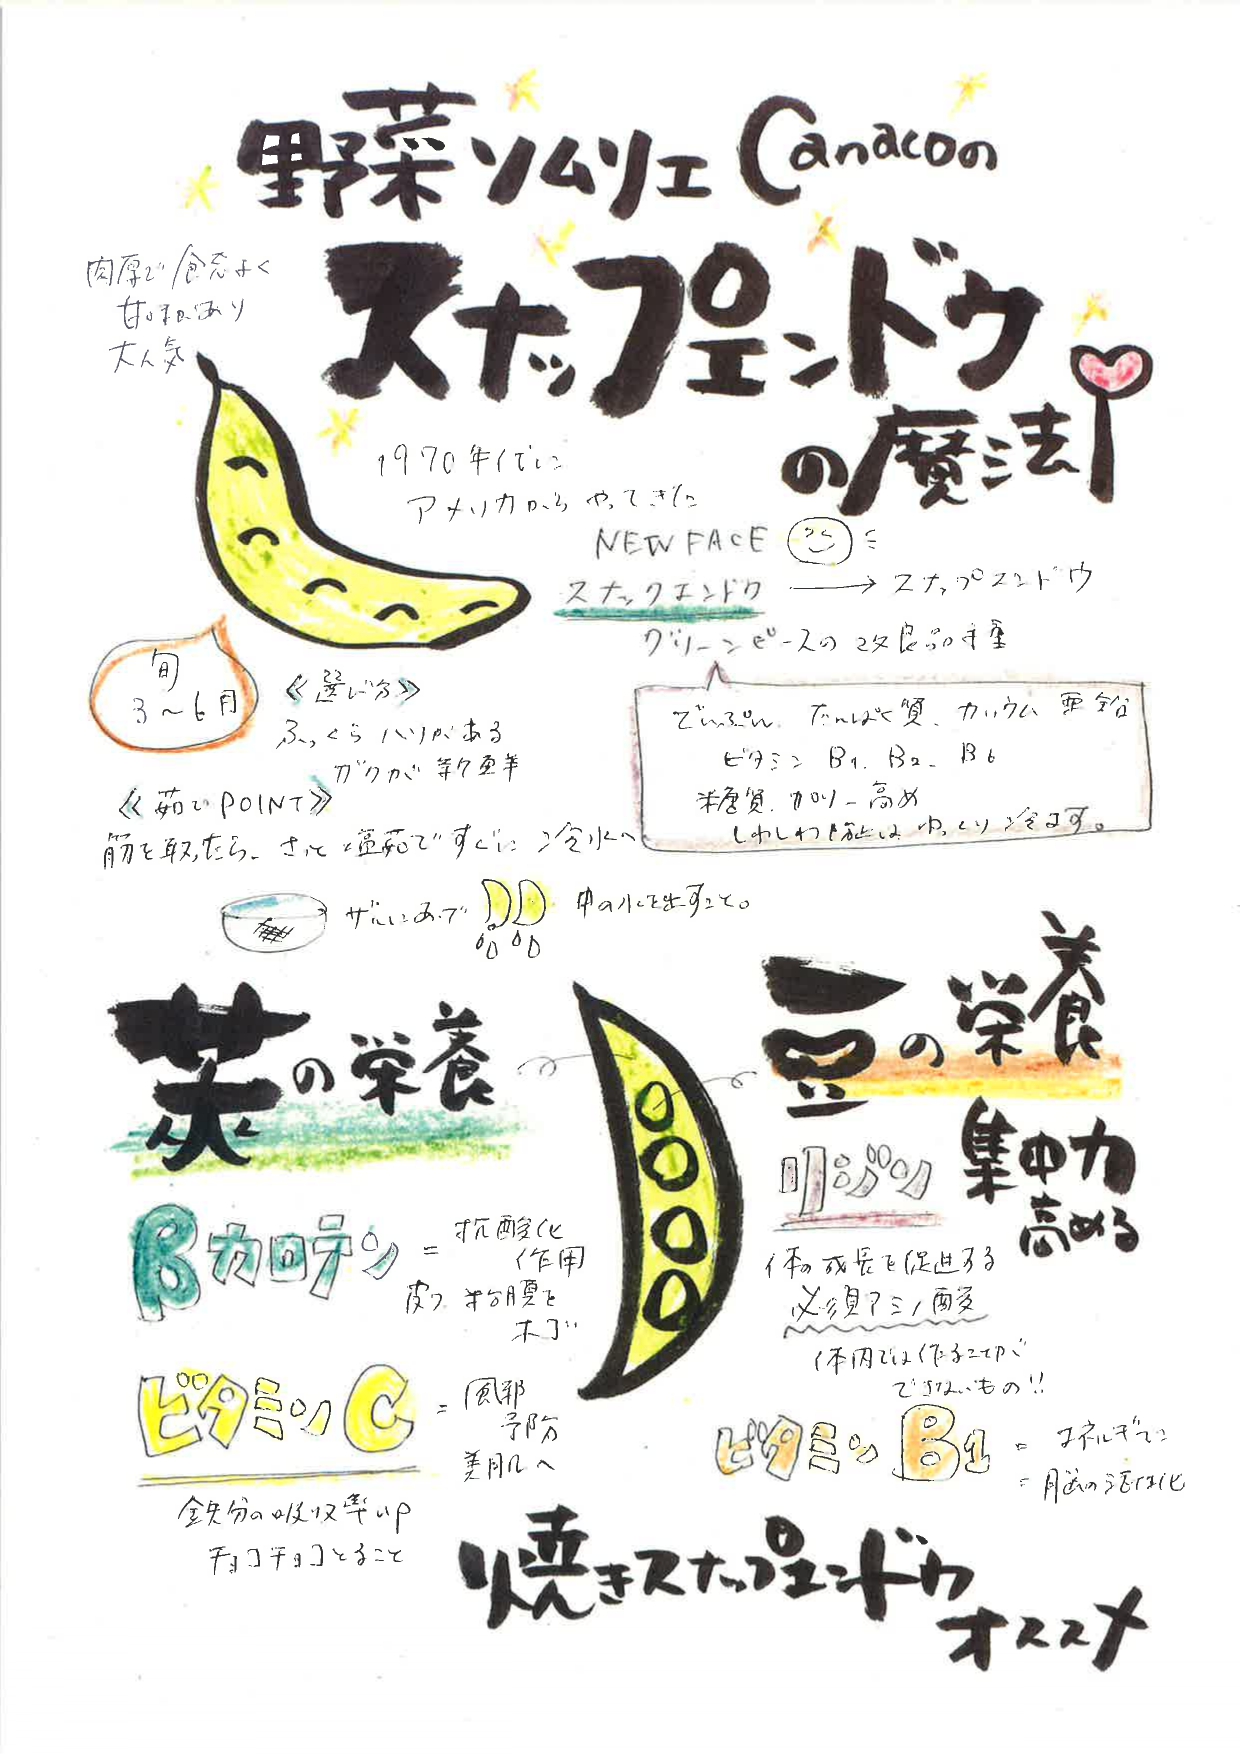 野菜ソムリエ Canacoの
スナップエンドウ
の魔法
肉厚で食感よく
甘味があり
大人気
1970年代に
アメリカからやってきた
NEW FACE
スナックエンドウ → スナップエンドウ
グリーンピースの改良品種
でんぷん、たんぱく質、カリウム 亜鉛
ビタミン B1、B2、B6
糖質、カロリー高め
しわしわ防止は ゆっくり冷ます。
旬
3〜6月
《選び方》
ふっくらハリがある
ガクが新鮮
《茹でPOINT》
筋を取ったら、さっと塩茹ですぐに冷水へ
ザルにあげ 中の水を出すこと。
莢の栄養
βカロテン = 抗酸化
作用
皮フ 粘膜を
ホゴ
ビタミンC = 風邪
予防
美肌へ
鉄分の吸収率up
チョコチョコとること
豆の栄養
リジン 集中力
高める
体の成長を促進する
必須アミノ酸
体内では作ることが
できないもの!!
ビタミンB1 = エネルギーに
= 脳の活性化
焼きスナップエンドウ
オススメ